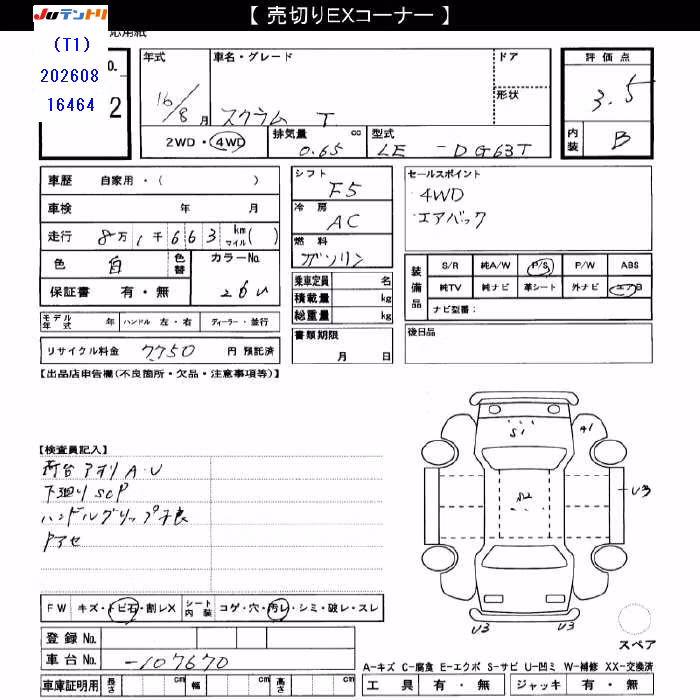 【 売切りEXコーナー 】
JUテントリ
(T1)
202608
16464
応用紙
o.
2
年式
16/8月
車名・グレード
スクラム T
ドア
形状
評価点
3.5
内装
B
2WD・4WD
排気量
0.65
cc
型式
LE -DG63T
車歴 自家用・( )
車検 年 月
走行 8万1千663 km マイル( )
色 白
色替
カラーNo.
26U
保証書 有・無
モデル年式 年 ハンドル 左・右 ディーラー・並行
リサイクル料金 7750 円 預託済
シフト
F5
冷房
AC
燃料
ガソリン
乗車定員 名
積載量 kg
総重量 kg
書類期限
月 日
セールスポイント
4WD
エアバック
装備品
S/R 純A/W P/S P/W ABS
純TV 純ナビ 革シート 外ナビ エアB
ナビ型番:
後日品
【出品店申告欄(不良箇所・欠品・注意事項等)】
【検査員記入】
荷台アオリA・U
下廻りSCP
ハンドルグリップ不良
Pアセ
S1
A1
A2
U3
U3
U3
スペア
FW キズ・トビ石・割レX
シート内装 コゲ・穴・汚レ・シミ・破レ・スレ
登録No.
車台No. -107670
車庫証明用 長さ cm 幅 cm 高さ cm
A-キズ C-腐食 E-エクボ S-サビ U-凹ミ W-補修 XX-交換済
工具 有・無 ジャッキ 有・無